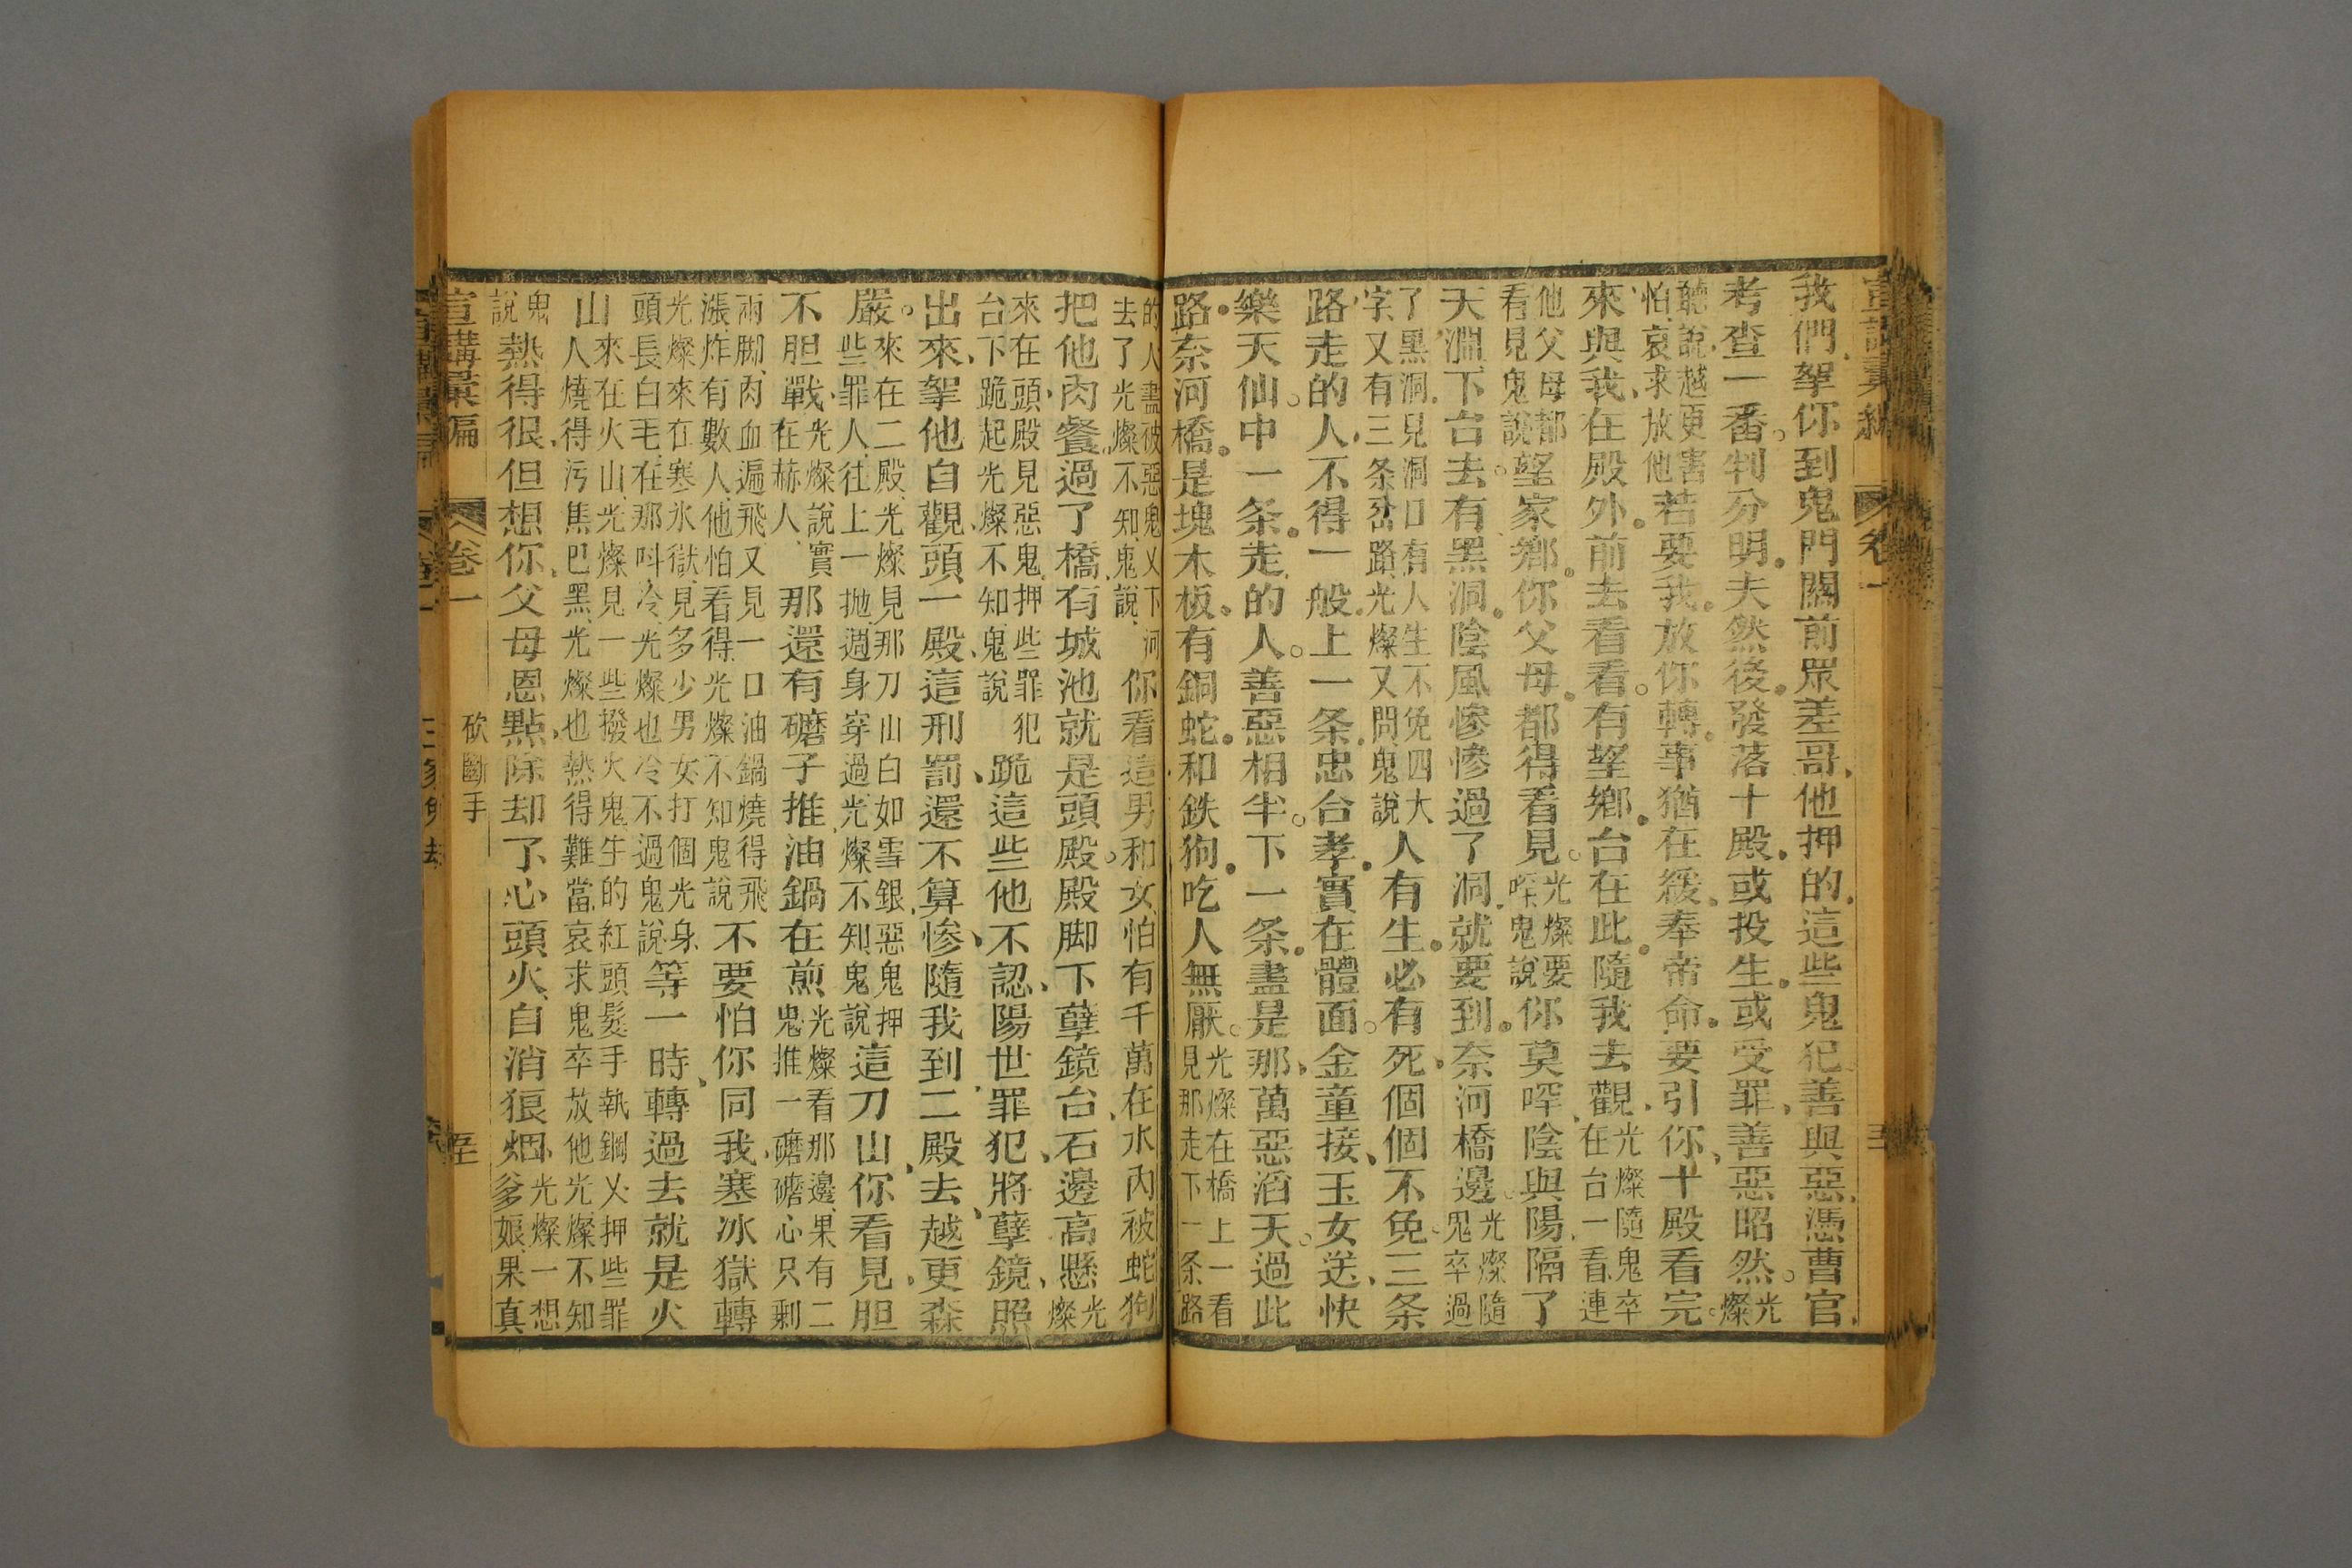 宣講彙編 卷一
我們拏你到鬼門關前眾差哥他押的這些鬼犯善與惡憑曹官
考查一番判分明夫然後發落十殿或投生或受罪善惡昭然光燦
聽說越更害怕哀求放他若要我放你轉事猶在緩奉帝命要引你十殿看完
來與我在殿外前去看看有望鄉台在此隨我去觀光燦隨鬼卒在台一看連
他父母都看見鬼說望家鄉你父母都得看見光燦要哭鬼說你莫哭陰與陽隔了
天淵下台去有黑洞陰風慘慘過了洞就要到奈河橋邊光燦隨鬼卒過
了黑洞見洞口有人生不免四大字又有三条岔路光燦又問鬼說人有生必有死個個不免三条
路走的人不得一般上一条忠台孝實在體面金童接玉女送快
樂天仙中一条走的人善惡相半下一条盡是那萬惡滔天過此
路奈河橋是塊木板有銅蛇和鉄狗吃人無厭光燦在橋上一看見那走下一条路
的人盡被惡鬼叉下河去了光燦不知鬼說你看這男和女怕有千萬在水內被蛇狗
把他肉餐過了橋有城池就是頭殿殿脚下孽鏡台石邊高懸光燦
來在頭殿見惡鬼押些罪犯台下跪起光燦不知鬼說跪這些他不認陽世罪犯將孽鏡照
出來拏他自觀頭一殿這刑罰還不算慘隨我到二殿去越更森
嚴來在二殿光燦見那刀山白如雪銀惡鬼押些罪人往上一拋週身穿過光燦不知鬼說這刀山你看見胆
不胆戰光燦說實在赫人那還有磨子推油鍋在煎光燦看那邊果有二鬼推一磨磨心只剩
兩脚肉血遍飛又見一口油鍋燒得飛漲炸有數人他怕看得光燦不知鬼說不要怕你同我寒冰獄轉
光燦來在寒氷獄見多少男女打個光身頭長白毛在那呌冷光燦也冷不過鬼說等一時轉過去就是火
山來在火山光燦見一些撥火鬼生的紅頭髮手執鋼叉押些罪人燒得污焦巴黑光燦也熱得難當哀求鬼卒放他光燦不知
鬼說熱得很但想你父母恩點除却了心頭火自消狼烟光燦一想爹娘果真
宣講彙編 卷一 砍斷手 至